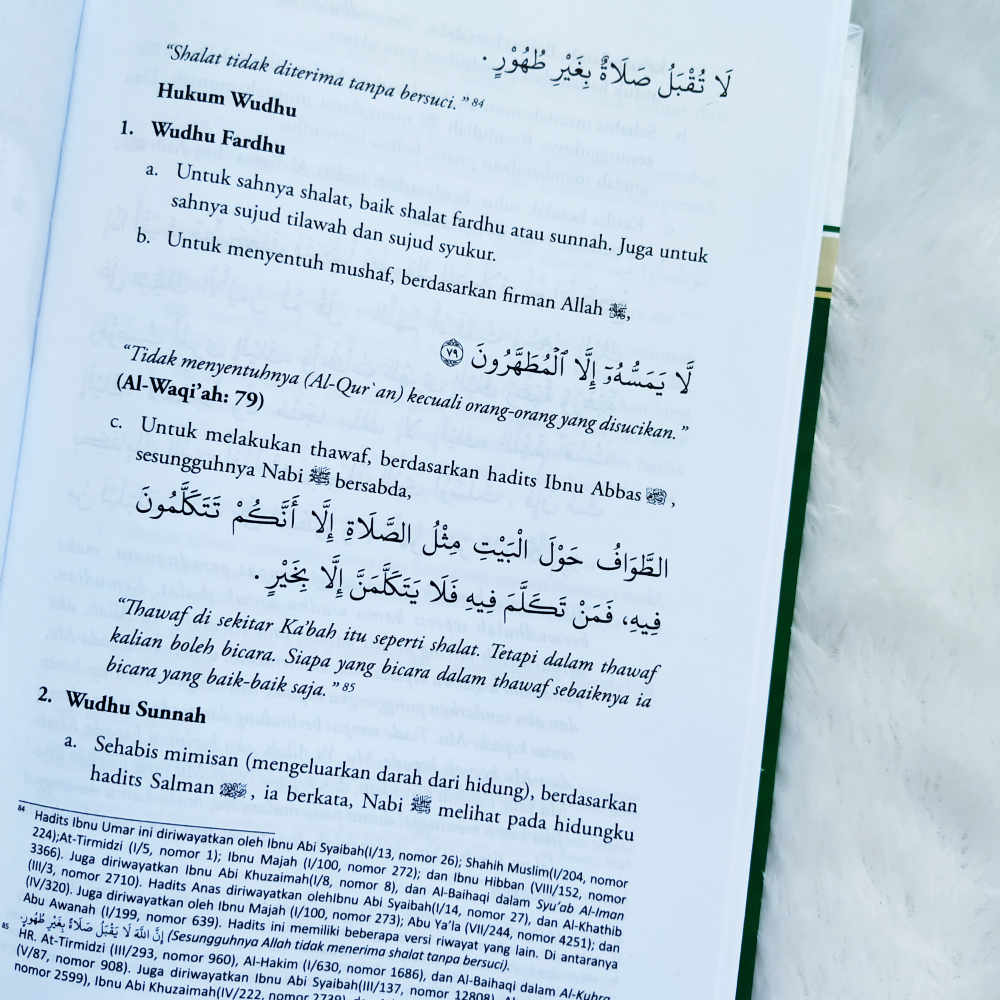 لَا تُقْبَلُ صَلَاةٌ بِغَيْرِ طُهُوْرٍ.
“Shalat tidak diterima tanpa bersuci.” 84
Hukum Wudhu
1. Wudhu Fardhu
a. Untuk sahnya shalat, baik shalat fardhu atau sunnah. Juga untuk
sahnya sujud tilawah dan sujud syukur.
b. Untuk menyentuh mushaf, berdasarkan firman Allah ﷻ,
لَّا يَمَسُّهُۥٓ إِلَّا ٱلْمُطَهَّرُونَ ٧٩
“Tidak menyentuhnya (Al-Qur`an) kecuali orang-orang yang disucikan.”
(Al-Waqi’ah: 79)
c. Untuk melakukan thawaf, berdasarkan hadits Ibnu Abbas ,
sesungguhnya Nabi ﷺ bersabda,
الطَّوَافُ حَوْلَ الْبَيْتِ مِثْلُ الصَّلَاةِ إِلَّا أَنَّكُمْ تَتَكَلَّمُونَ
فِيهِ، فَمَنْ تَكَلَّمَ فِيهِ فَلَا يَتَكَلَّمَنَّ إِلَّا بِخَيْرٍ.
“Thawaf di sekitar Ka’bah itu seperti shalat. Tetapi dalam thawaf
kalian boleh bicara. Siapa yang bicara dalam thawaf sebaiknya ia
bicara yang baik-baik saja.” 85
2. Wudhu Sunnah
a. Sehabis mimisan (mengeluarkan darah dari hidung), berdasarkan
hadits Salman , ia berkata, Nabi ﷺ melihat pada hidungku
84 Hadits Ibnu Umar ini diriwayatkan oleh Ibnu Abi Syaibah(I/13, nomor 26); Shahih Muslim(I/204, nomor
224);At-Tirmidzi (I/5, nomor 1); Ibnu Majah (I/100, nomor 272); dan Ibnu Hibban (VIII/152, nomor
3366). Juga diriwayatkan Ibnu Abi Khuzaimah(I/8, nomor 8), dan Al-Baihaqi dalam Syu’ab Al-Iman
(III/3, nomor 2710). Hadits Anas diriwayatkan olehIbnu Abi Syaibah(I/14, nomor 27), dan Al-Khathib
(IV/320). Juga diriwayatkan oleh Ibnu Majah (I/100, nomor 273); Abu Ya’la (VII/244, nomor 4251); dan
Abu Awanah (I/199, nomor 639). Hadits ini memiliki beberapa versi riwayat yang lain. Di antaranya
إِنَّ اللهَ لَا يَقْبَلُ صَلَاةً بِغَيْرِ طُهُوْرٍ (Sesungguhnya Allah tidak menerima shalat tanpa bersuci).
85 HR. At-Tirmidzi (III/293, nomor 960), Al-Hakim (I/630, nomor 1686), dan Al-Baihaqi dalam Al-Kubra
(V/87, nomor 908). Juga diriwayatkan Ibnu Abi Syaibah(III/137, nomor 12808)
nomor 2599), Ibnu Abi Khuzaimah(IV/222, nomor 2739)